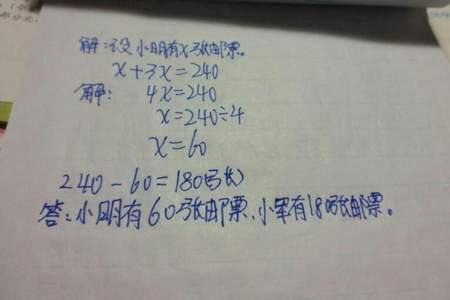 解:设小明有x张邮票。
x+3x=240
解: 4x=240
x=240÷4
x=60
240-60=180(张)
答:小明有60张邮票,小军有180张邮票。